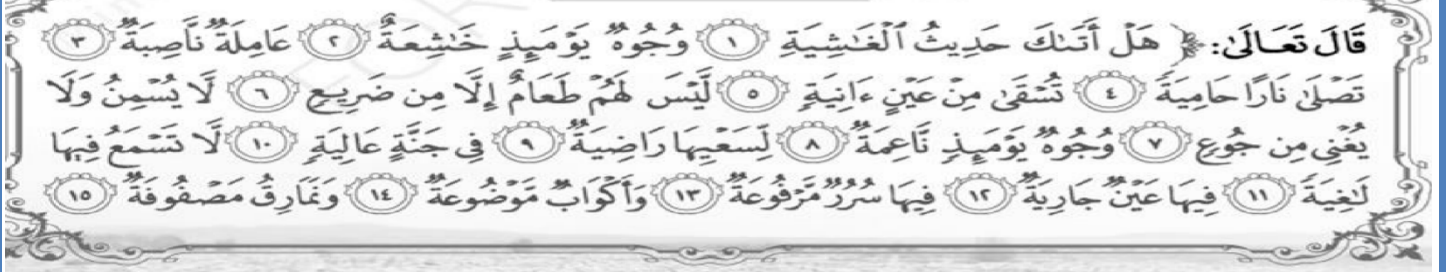 قَالَ تَعَالَىٰ: ﴿ هَلْ أَتَىٰكَ حَدِيثُ ٱلْغَٰشِيَةِ ١ وُجُوهٌ يَوْمَئِذٍ خَٰشِعَةٌ ٢ عَامِلَةٌ نَّاصِبَةٌ ٣
تَصْلَىٰ نَارًا حَامِيَةً ٤ تُسْقَىٰ مِنْ عَيْنٍ ءَانِيَةٍ ٥ لَّيْسَ لَهُمْ طَعَامٌ إِلَّا مِن ضَرِيعٍ ٦ لَّا يُسْمِنُ وَلَا
يُغْنِى مِن جُوعٍ ٧ وُجُوهٌ يَوْمَئِذٍ نَّاعِمَةٌ ٨ لِّسَعْيِهَا رَاضِيَةٌ ٩ فِى جَنَّةٍ عَالِيَةٍ ١٠ لَّا تَسْمَعُ فِيهَا
لَٰغِيَةً ١١ فِيهَا عَيْنٌ جَارِيَةٌ ١٢ فِيهَا سُرُرٌ مَّرْفُوعَةٌ ١٣ وَأَكْوَابٌ مَّوْضُوعَةٌ ١٤ وَنَمَارِقُ مَصْفُوفَةٌ ١٥